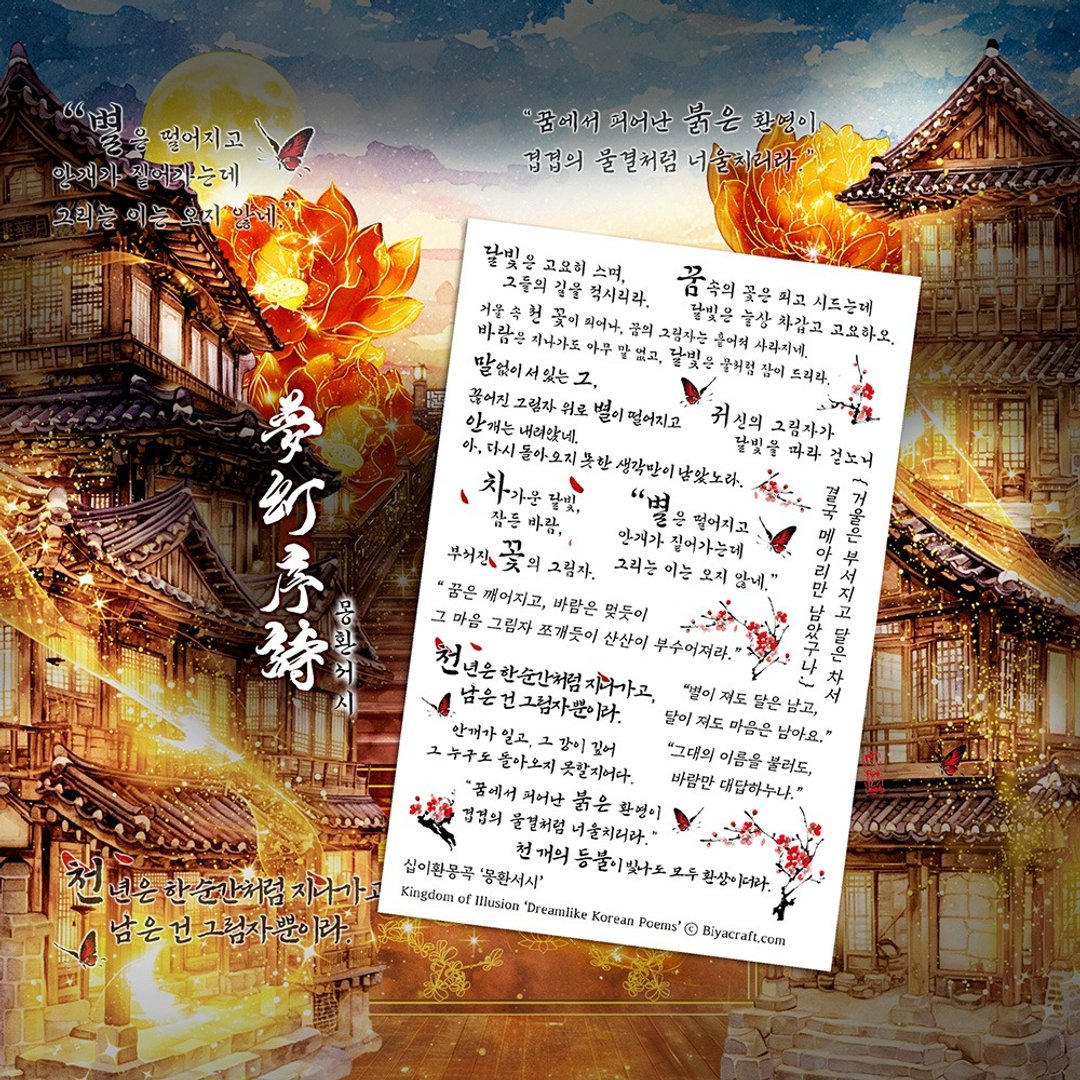 “별은 떨어지고
안개가 짙어가는데
그리는 이는 오지 않네.”
“꿈에서 피어난 붉은 환영이
겹겹의 물결처럼 너울치리라.”
夢幻序詩
몽환서시
천년은 한순간처럼 지나가고
남은 건 그림자뿐이라.
달빛은 고요히 스며,
그들의 길을 적시리라.
꿈속의 꽃은 피고 시드는데
달빛은 늘상 차갑고 고요하오.
거울 속 천 꽃이 피어나, 꿈의 그림자는 흩어져 사라지네.
바람은 지나가도 아무 말 없고, 달빛은 물처럼 잠이 드리라.
말없이 서 있는 그,
끊어진 그림자 위로 별이 떨어지고
안개는 내려앉네.
아, 다시 돌아오지 못한 생각만이 남았노라.
귀신의 그림자가
달빛을 따라 걷노니
(거울은 부서지고 닳은 차서
결국 메아리만 남았구나)
차가운 달빛,
잠든 바람,
부서진 꽃의 그림자.
“별은 떨어지고
안개가 짙어가는데
그리는 이는 오지 않네.”
“꿈은 깨어지고, 바람은 멎듯이
그 마음 그림자 쪼개듯이 산산이 부수어져라.”
천년은 한순간처럼 지나가고,
남은 건 그림자뿐이라.
“별이 져도 달은 남고,
달이 져도 마음은 남아요.”
안개가 일고, 그 강이 깊어
그 누구도 돌아오지 못할지어다.
“그대의 이름을 불러도,
바람만 대답하누나.”
“꿈에서 피어난 붉은 환영이
겹겹의 물결처럼 너울치리라.”
천 개의 등불이 빛나도 모두 환상이더라.
십이환몽곡 ‘몽환서시’
Kingdom of Illusion ‘Dreamlike Korean Poems’ ⓒ Biyacraft.com